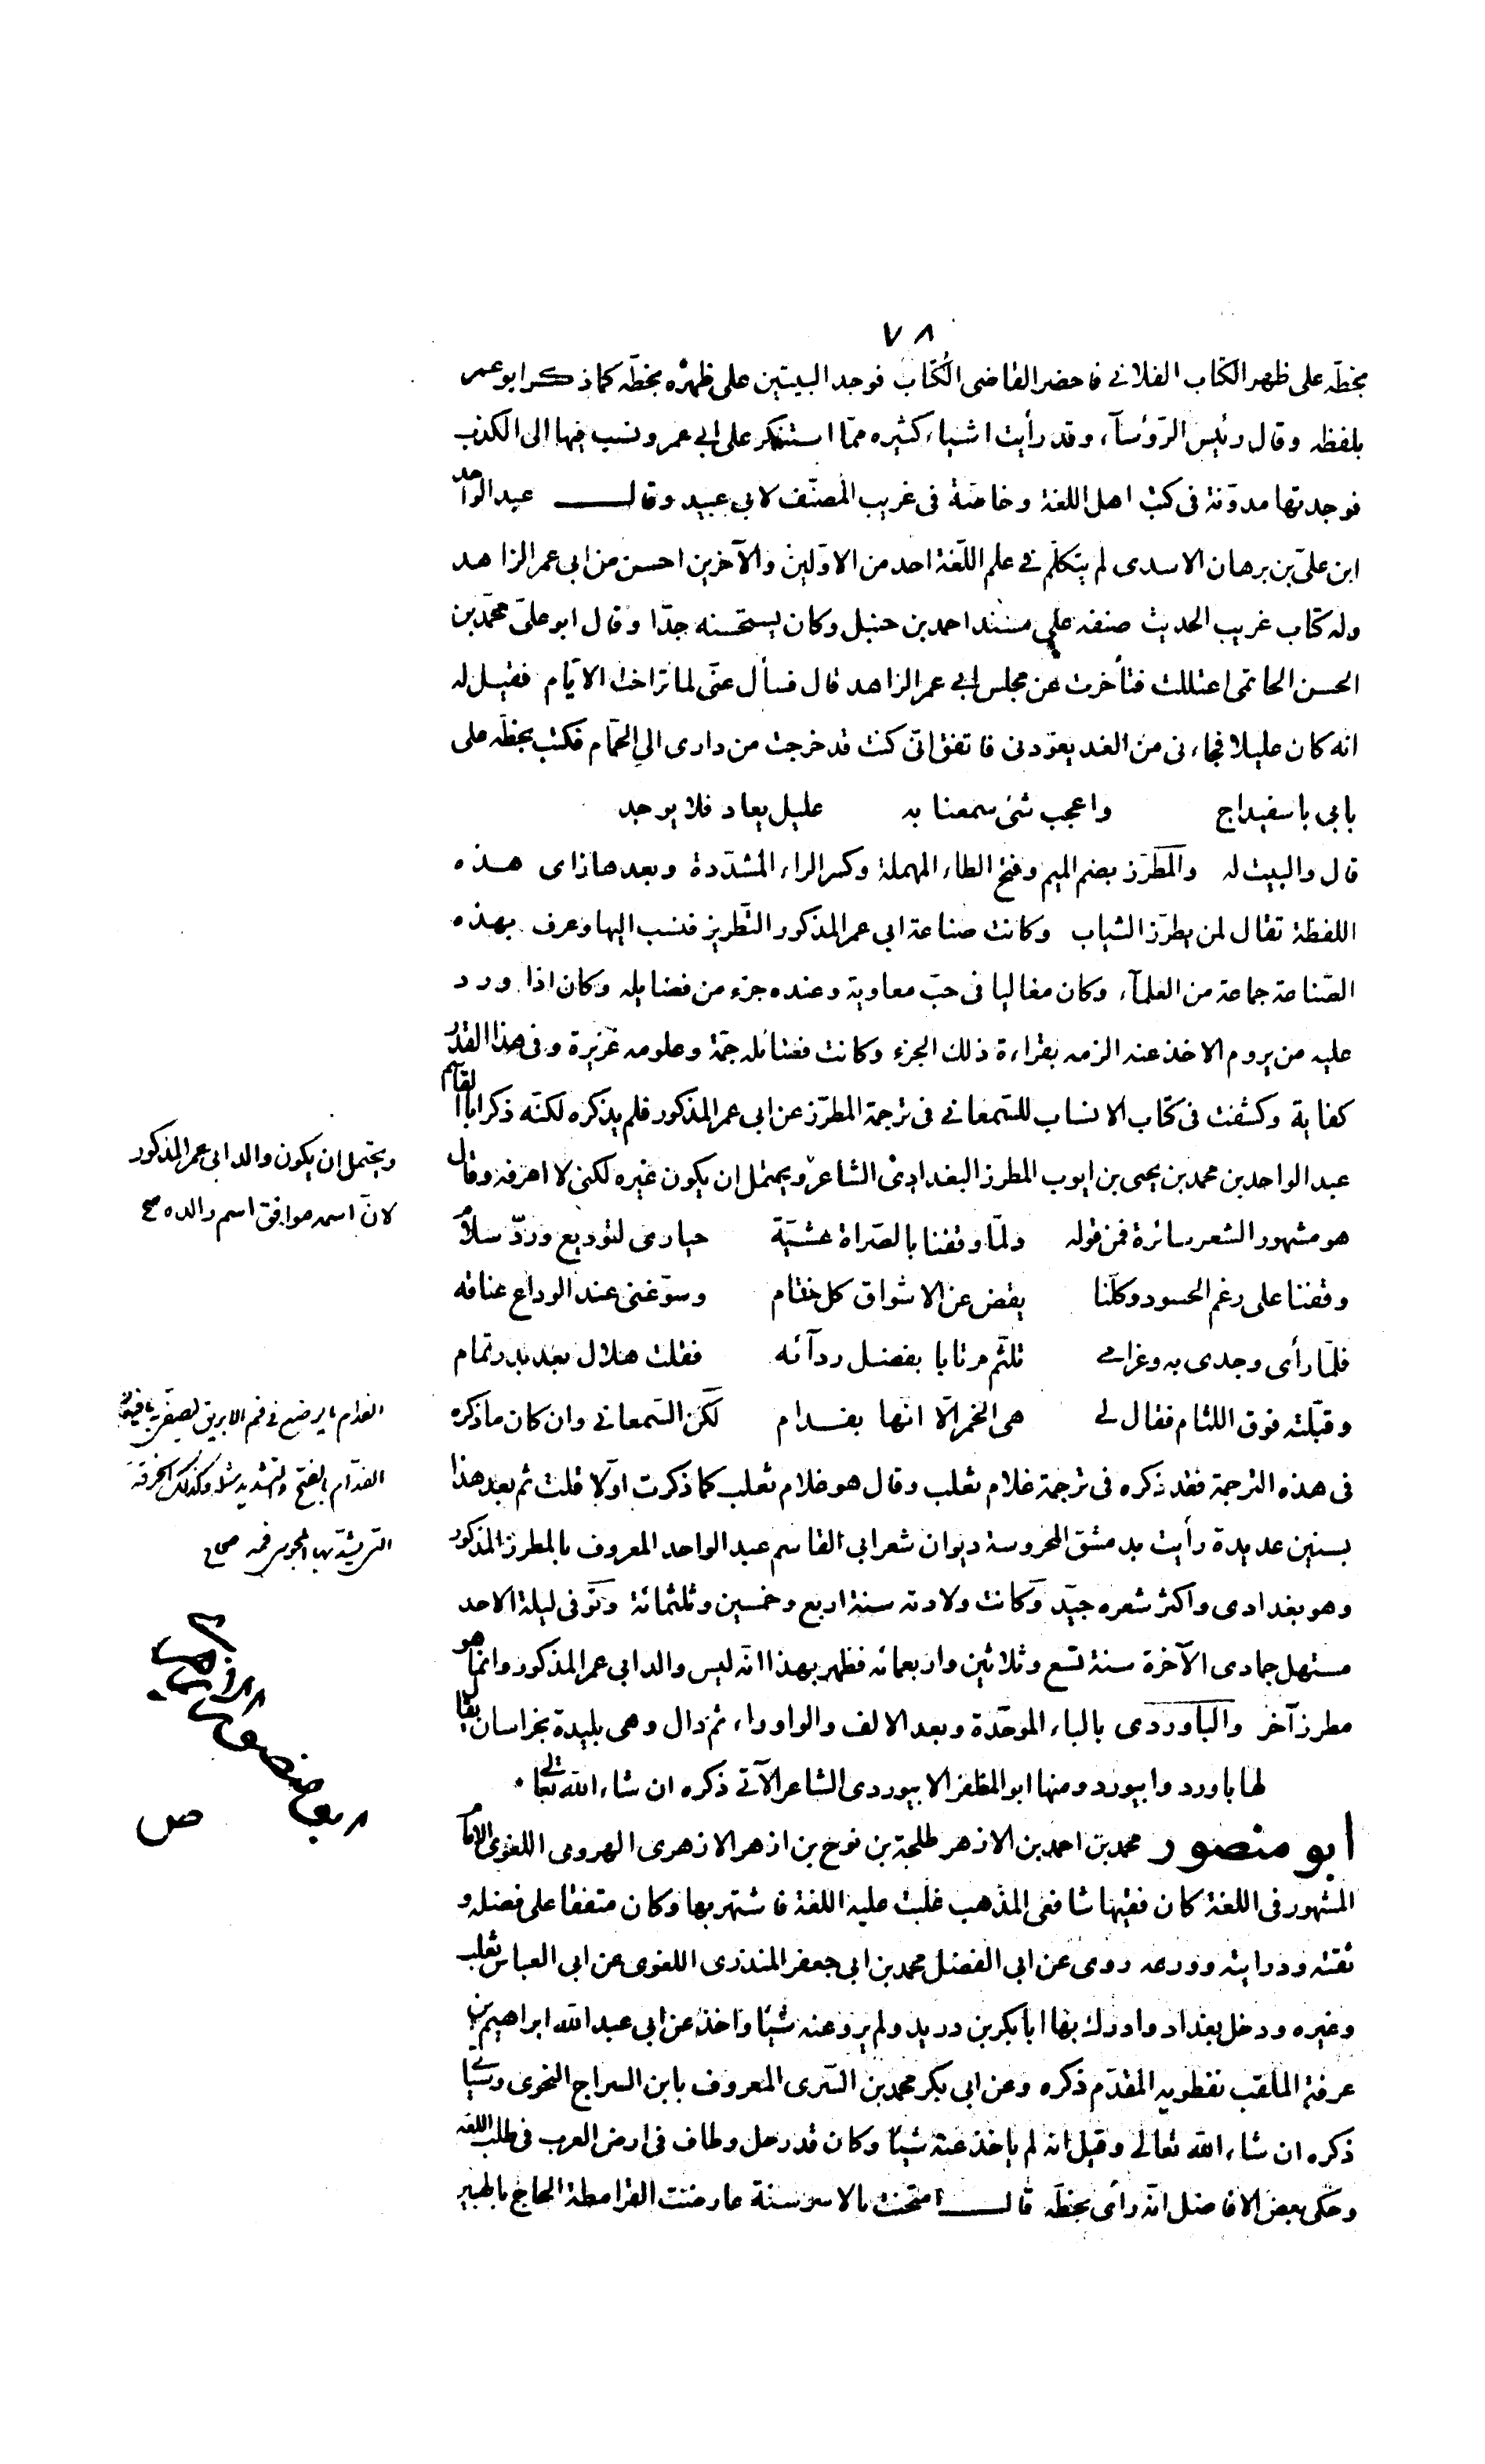 ٧٨
بخطه على ظهر الكتاب الفلانى فاحضر القاضى الكتاب فوجد البيتين على ظهره بخطه كما ذكر ابو عمر
بلفظه وقال رئيس الرؤسآء وقد رأيت اشياء كثيره ممّا استنكر على ابى عمر ونسب فيها الى الكذب
فوجدتها مدوّنة فى كتب اهل اللغة وخاصّة فى غريب المصنّف لابى عبيد وقال عبد الواحد
ابن علىّ بن برهان الاسدى لم يتكلّم فى علم اللّغة احد من الاوّلين والآخرين احسن من ابى عمر الزاهد
وله كتاب غريب الحديث صنفه على مسند احمد بن حنبل وكان يستحسنه جدّا وقال ابو علىّ محمّد بن
الحسن الحاتمى اعتللت فتأخرت عن مجلس ابى عمر الزاهد قال فسأل عنّى لما تراخت الايّام فقيل له
انه كان عليلا فجاءنى من الغد يعودنى فاتفق انّى كنت قد خرجت من دارى الى الحمّام فكتب بخطّه على
بابى باسفيداج واعجب شئ سمعنا به عليل يعاد فلا يوجد
قال والبيت له والمطرّز بضم الميم وفتح الطاء المهملة وكسر الراء المشدّدة وبعدها زاى هذه
اللفظة تقال لمن يطرّز الثياب وكانت صناعة ابى عمر المذكور التّطريز فنسب اليها وعرف بهذه
الصّناعة جماعة من العلمآء وكان مغاليا فى حبّ معاوية وعنده جزء من فضايله وكان اذا ورد
عليه من يروم الاخذ عنه الزمه بقراءة ذلك الجزء وكانت فضائله جمّة وعلومه غزيرة وفى هذا القدر
كفاية وكشفت فى كتاب الانساب للسّمعانى فى ترجمة المطرّز عن ابى عمر المذكور فلم يذكره لكنّه ذكر ابا القاسم
عبد الواحد بن محمد بن يحيى بن ايوب المطرز البغدادىّ الشاعر ويحتمل ان يكون غيره لكنى لا اعرفه وقال
هو مشهور الشعر سائرة فمن قوله ولمّا وقفنا بالصّراة عشيّة حيارى لتوديع وردّ سلام
وقفنا على رغم الحسود وكلّنا يفض عن الاشواق كل ختام وسوّغنى عند الوداع عناقه
فلمّا رأى وجدى به وغرامى تلثّم مرتابا بفضل ردآئه فقلت هلال بعد بدر تمام
وقبّلته فوق اللثام فقال لى هى الخمر الّا انّها بفدام لكن السّمعانى وان كان ما ذكره
فى هذه الترجمة فقد ذكره فى ترجمة غلام ثعلب وقال هو غلام ثعلب كما ذكرت اوّلا قلت ثم بعد هذا
بسنين عديدة رأيت بدمشق المحروسة ديوان شعر ابى القاسم عبد الواحد المعروف بالمطرز المذكور
وهو بغدادى واكثر شعره جيّد وكانت ولادته سنة اربع وخمسين وثلثمائة وتوّفى ليلة الاحد
مستهل جمادى الآخرة سنة تسع وثلاثين واربعمائه فظهر بهذا انّه ليس والد ابى عمر المذكور وانّما هو
مطرز آخر والباوردى بالباء الموحّدة وبعد الالف والواو راء ثم دال وهى بليدة بخراسان يقال
لها باورد وابيورد ومنها ابو المظفر الابيوردى الشاعر الآتى ذكره ان شاء الله تعالى
ابو منصور محمد بن احمد بن الازهر طلحة بن نوح بن ازهر الازهرى الهروى اللغوى الامام
المشهور فى اللغة كان فقيها شافعى المذهب غلبت عليه اللغة فاشتهر بها وكان متفقا على فضله و
ثقته ودرايته وورعه روى عن ابى الفضل محمد بن ابى جعفر المنذرى اللغوى عن ابى العباس ثعلب
وغيره ودخل بغداد وادرك بها ابا بكر بن دريد ولم يرو عنه شيئا واخذ عن ابى عبد الله ابراهيم بن
عرفة الملقب نفطويه المقدّم ذكره وعن ابى بكر محمد بن السّرى المعروف بابن السراج النحوى وسيأتى
ذكره ان شاء الله تعالى وقيل انه لم ياخذ عنه شيئا وكان قد رحل وطاف فى ارض العرب فى طلب اللغه
وحكى بعض الافاضل انّه رأى بخطّه قال امتحنت بالاسر سنة عارضت القرامطة الحاج بالهبير
ويحتمل ان يكون والد ابى عمر المذكور
لانّ اسمه موافق اسم والده صح
الفدام ما يوضع فى فم الابريق ليصفّى به ما فيه
الفدّام بالفتح والتشديد مثله وكذلك الخرقة
التى يشدّ بها المجوس فمه صحاح
ابو منصور
الازهرى
ص